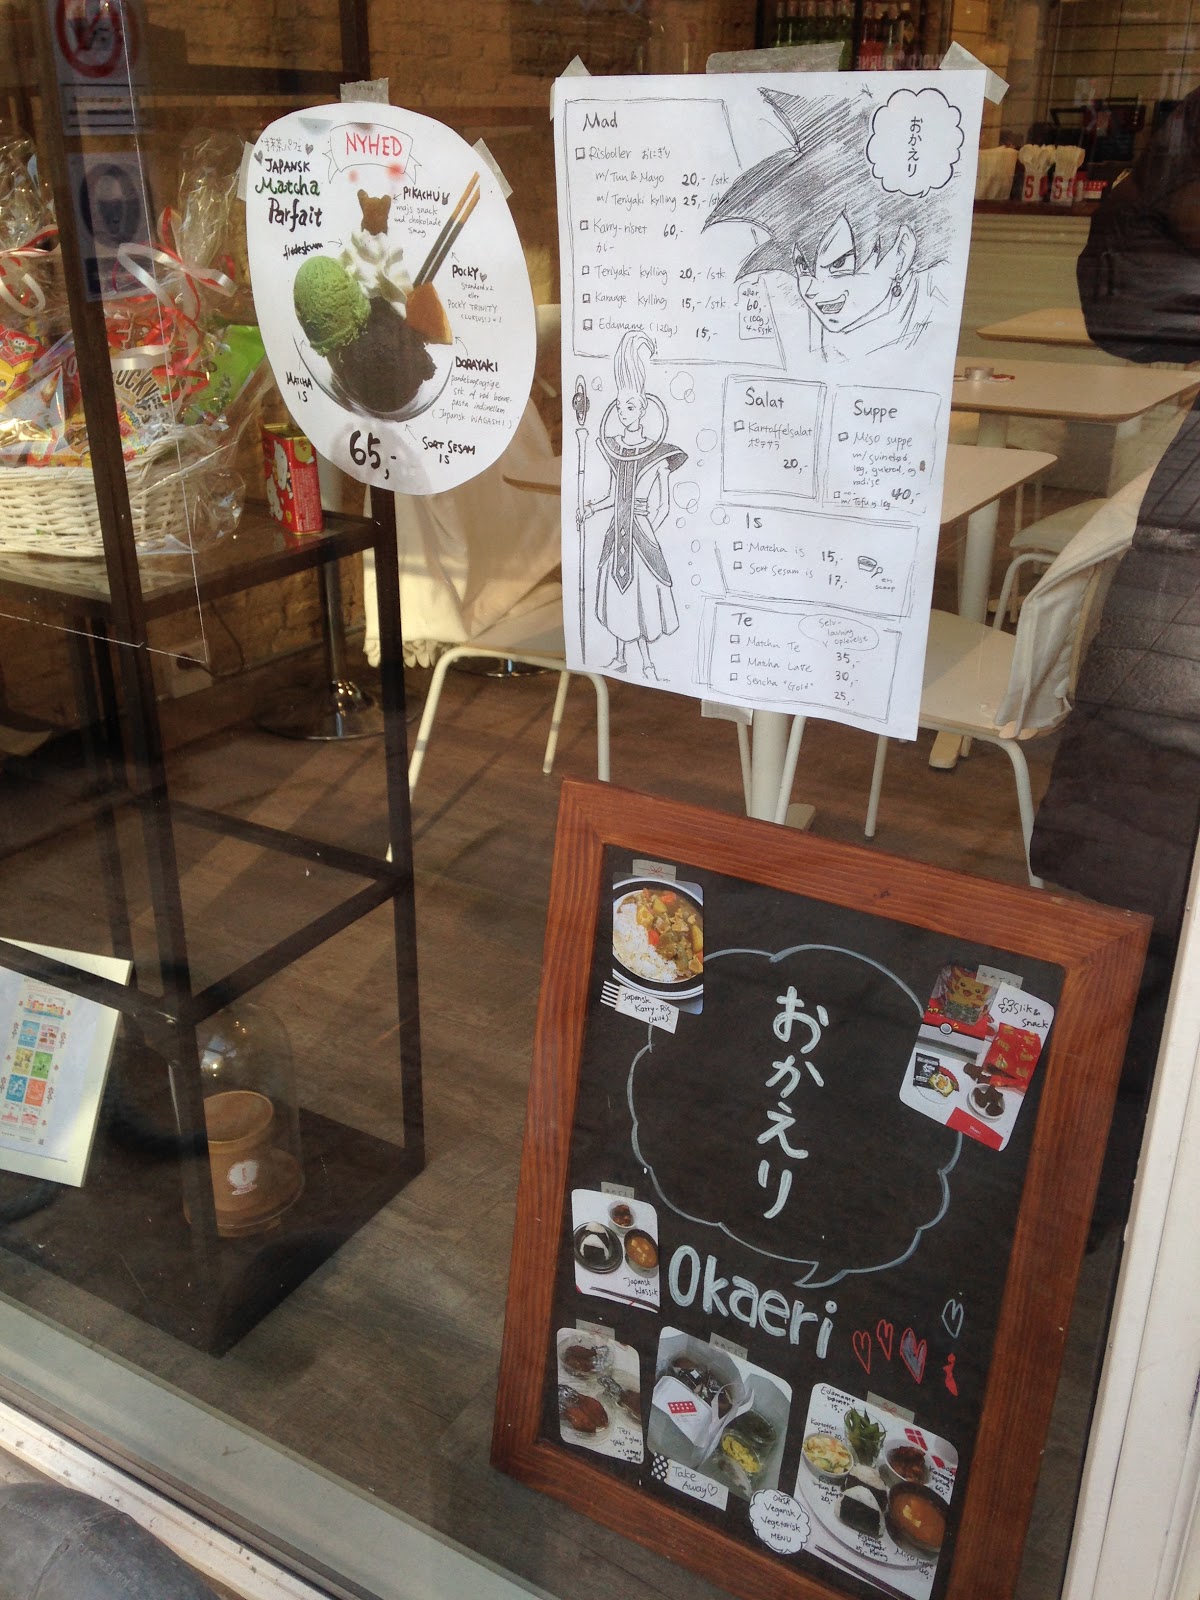 抹茶パフェ
NYHED
JAPANSK
Matcha
Parfait
flødeskum
PIKACHU
majs snack
med chokolade
smag
POCKY
Standard x 2
eller
POCKY TRINITY
DORAYAKI
pandekagelignende
stk. af rød bønne-
pasta indimellem
(Japansk WAGASHI)
MATCHA
IS
SORT SESAM
IS
65,-
おかえり
Mad
Risboller おにぎり
m/ Tun & Mayo 20,-/stk
m/ Teriyaki kylling 25,-/stk
Karry-risret 60,-
カレー
Teriyaki kylling 20,-/stk
Karaage kylling 15,-/stk
eller
60,-
(100g)
4-5stk
Edamame (120g) 15,-
Salat
Kartoffelsalat
ポテサラ
20,-
Suppe
Miso suppe
m/ svinekød,
løg, gulerod, og
radise
40,-
m/ Tofu og løg
Is
Matcha is 15,-
Sort Sesam is 17,-
en
scoop
Te
Selv-
lavning
oplevelse
Matcha Te 35,-
Matcha Latte 30,-
Sencha "Gold" 25,-
Japansk
Karry-Ris
(Mild)
Slik &
Snack
おかえり
Okaeri
Japansk
klassik
Take
Away
også
Vegansk/
Vegetarisk
MENU
Edamame
15,-
Kartoffel
Salat 20,-
Tun &
Mayo
20,-
60,-
Miso suppe